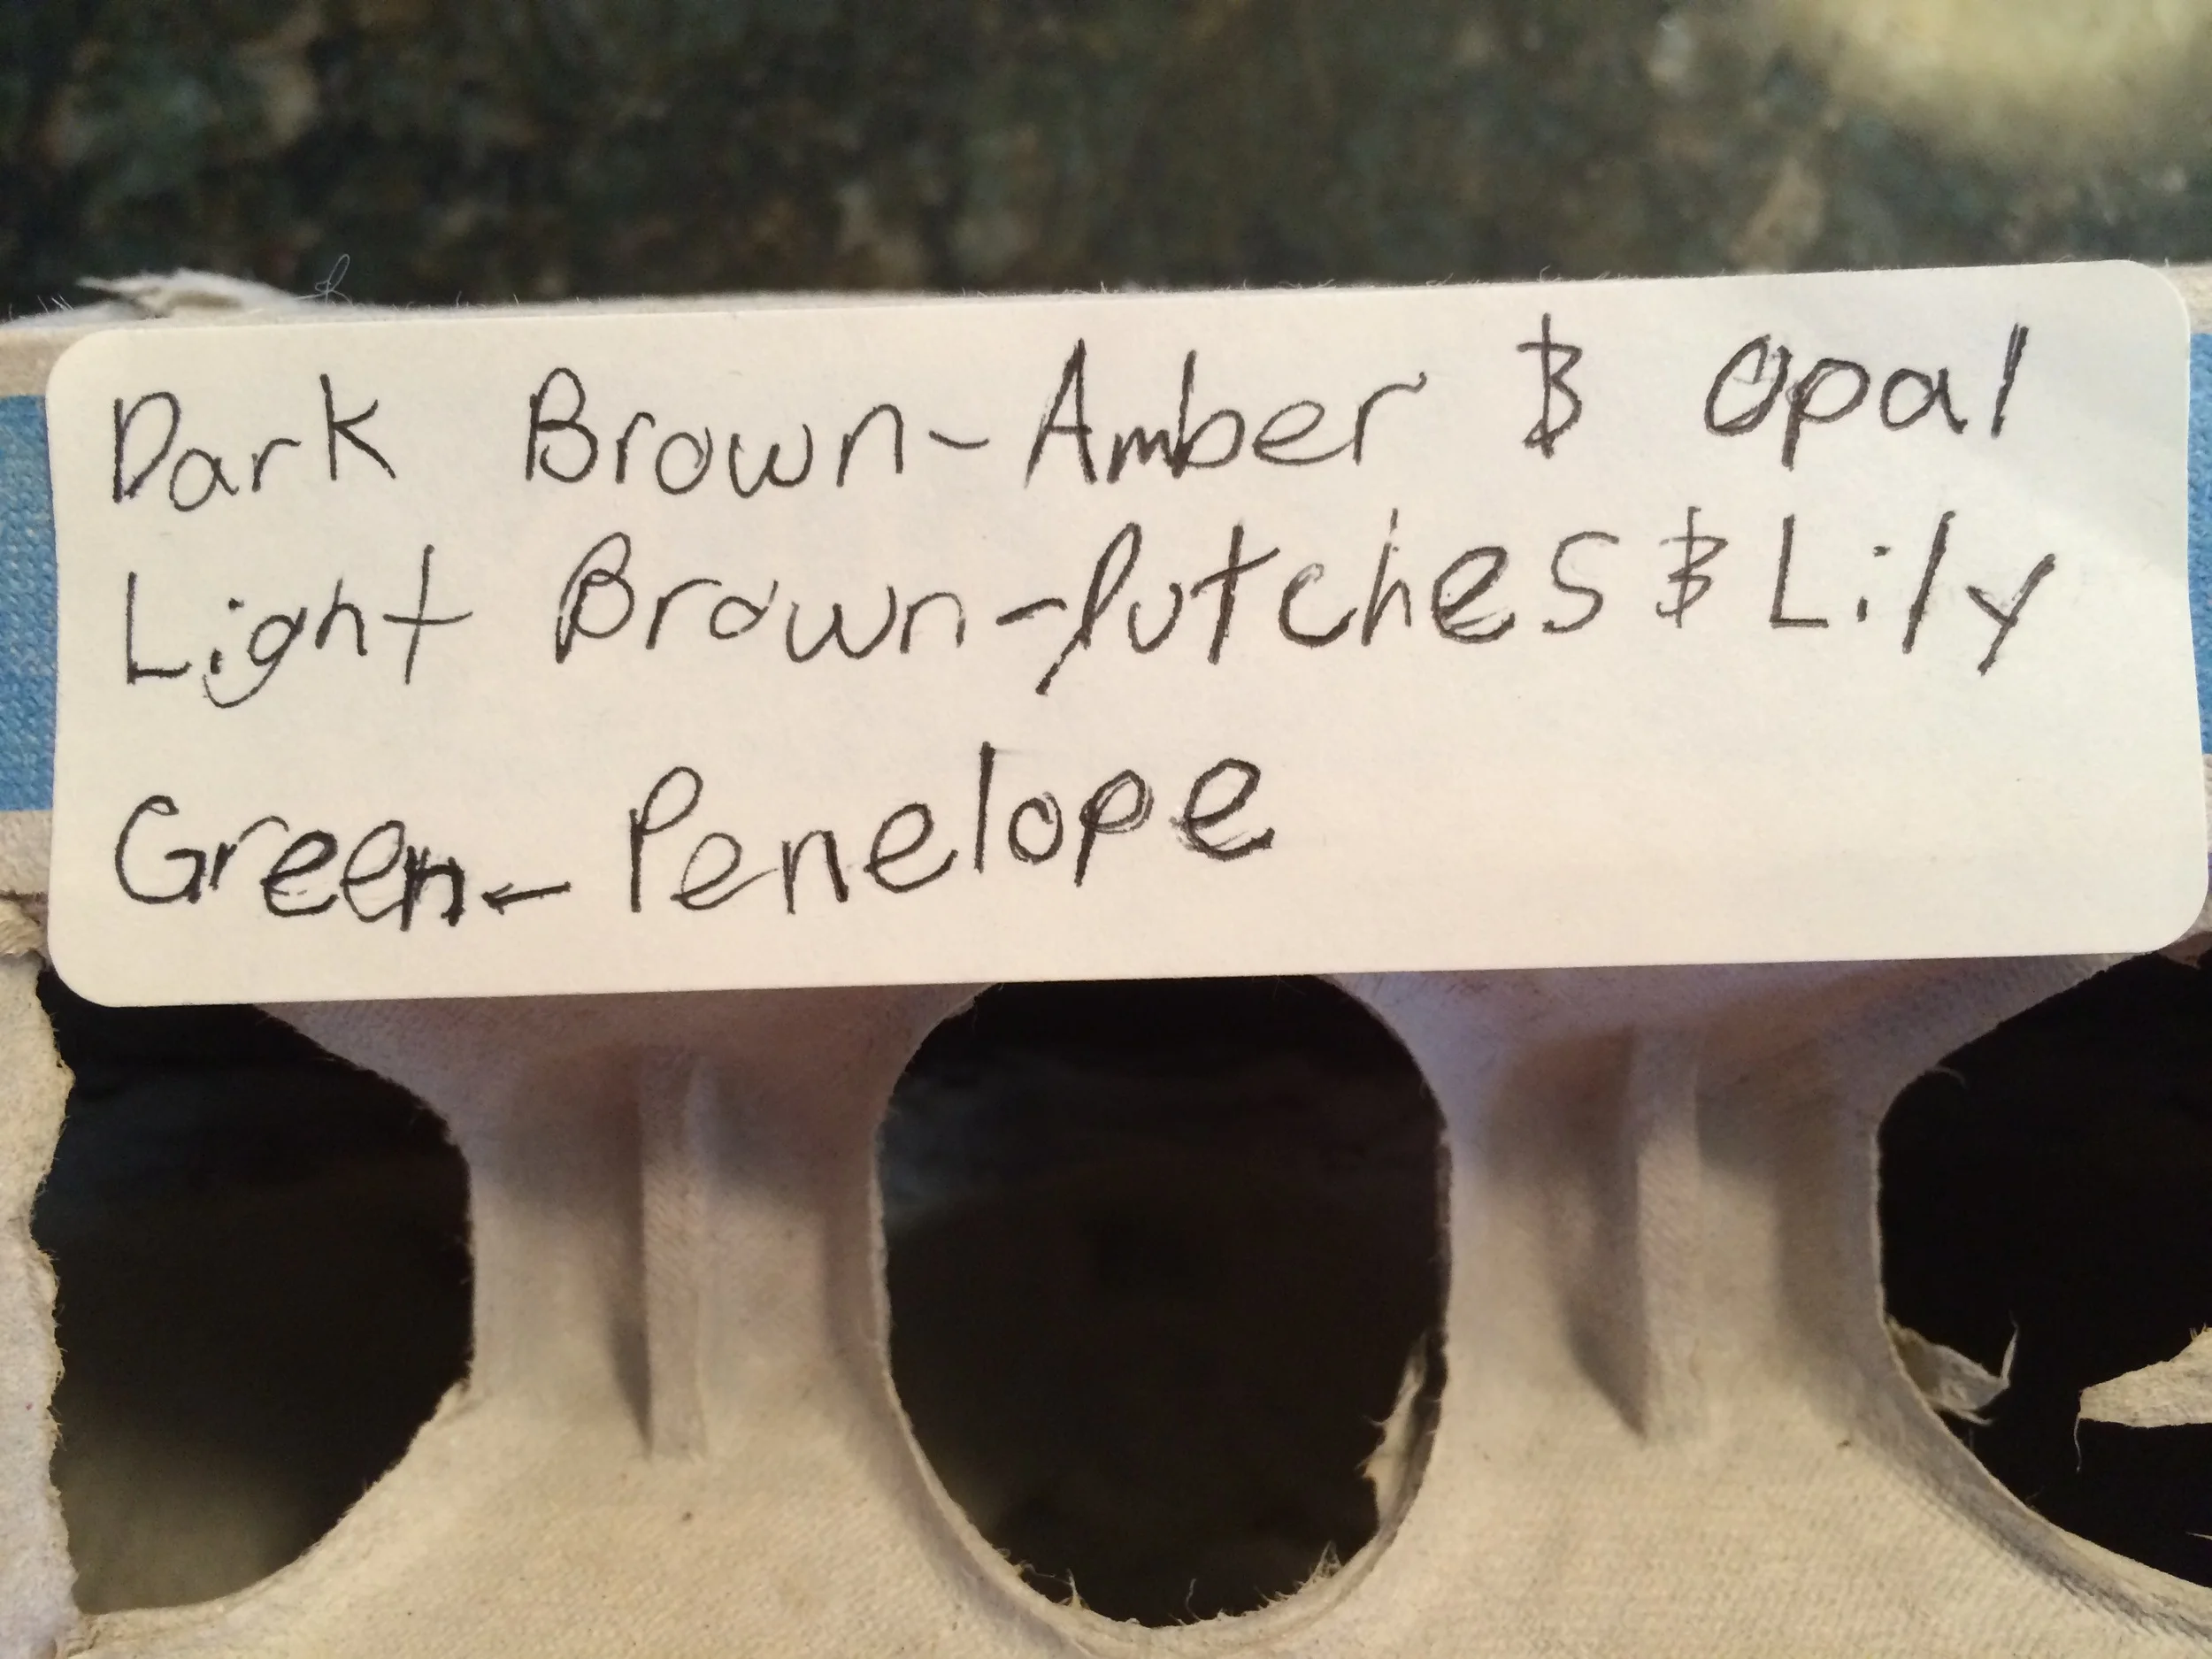 Dark Brown-Amber & Opal
Light Brown-Putches & Lily
Green-Penelope